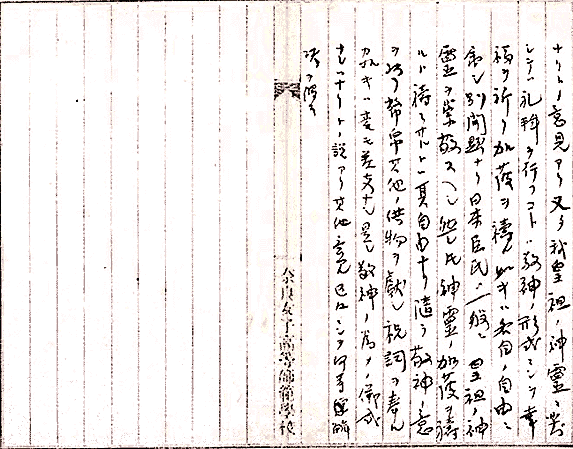 ナリトノ意見アリ又タ我皇祖ノ神靈ニ對
シテハ礼拜ヲ行フコトハ敬神ノ形式ニシテ幸
福ヲ祈リ加護ヲ禱ルカ如キハ各自ノ自由ニ
シ別問題ナリ日本臣民ハ一般ニ皇祖ノ神
靈ヲ崇敬スヘシ然レ𪜈神靈ノ加護ヲ禱
ルト禱ラサルトハ其自由ナリ隨テ敬神ノ意
ヲ以テ幣帛其他ノ供物ヲ獻シ祝詞ヲ奏ル
カ如キハ モ差支ナシ是レ敬神ノ爲メノ儀式
ナレハナリトノ説アリ其他意見區々ニシテ何等
決ヲ得ス
奈良女子高等師範學校